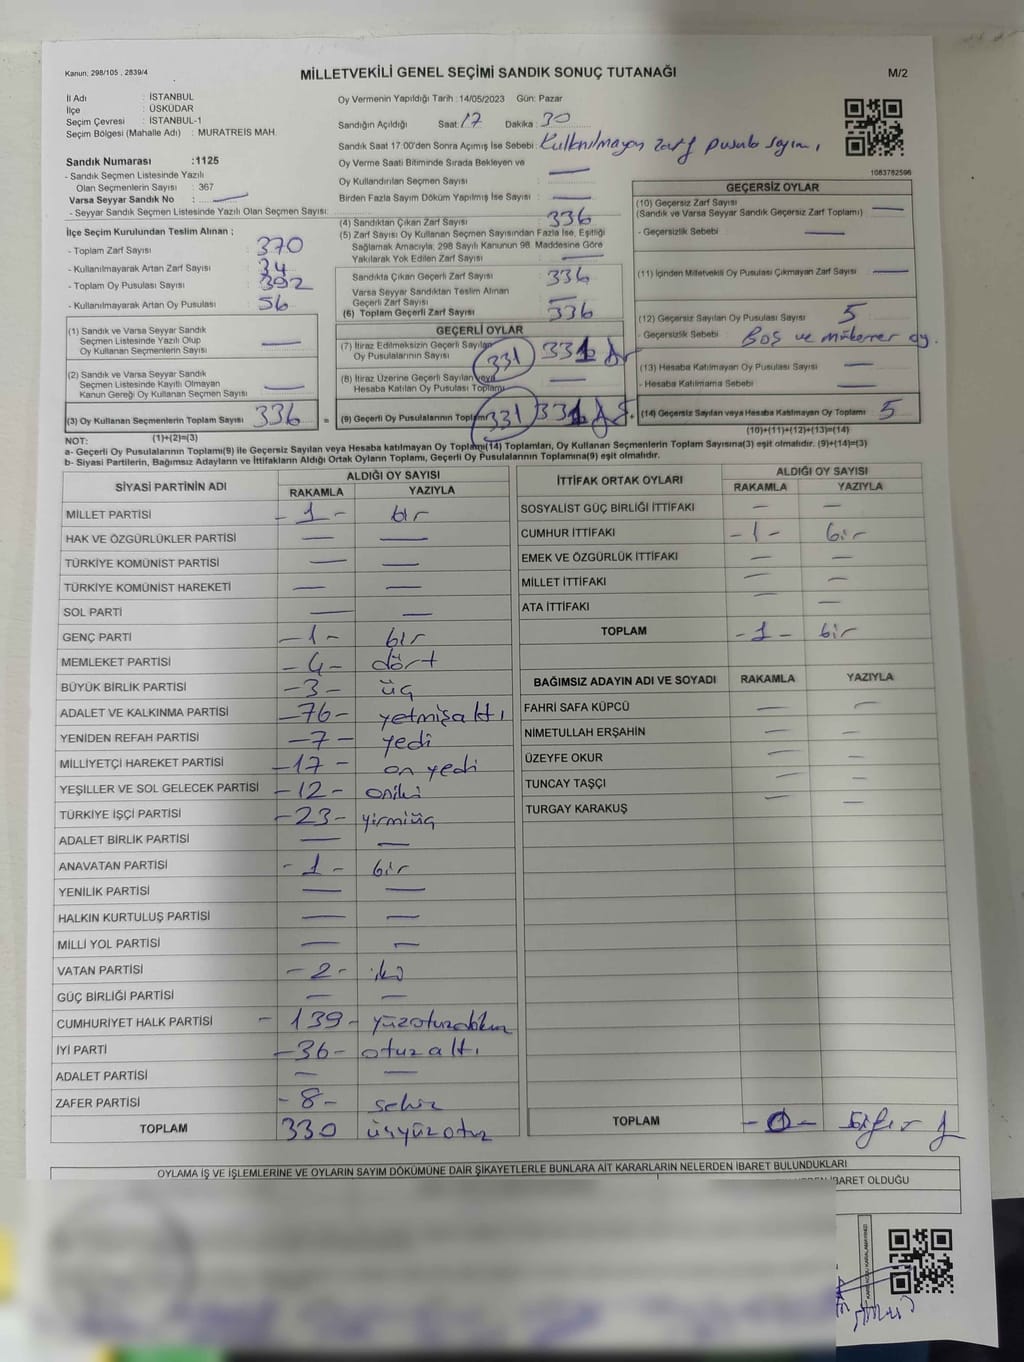 Kanun: 298/105 , 2839/4
MİLLETVEKİLİ GENEL SEÇİMİ SANDIK SONUÇ TUTANAĞI
M/2
İl Adı : İSTANBUL
İlçe : ÜSKÜDAR
Seçim Çevresi : İSTANBUL-1
Seçim Bölgesi (Mahalle Adı) : MURATREİS MAH.
Sandık Numarası :1125
- Sandık Seçmen Listesinde Yazılı
Olan Seçmenlerin Sayısı : 367
Varsa Seyyar Sandık No : —
- Seyyar Sandık Seçmen Listesinde Yazılı Olan Seçmen Sayısı:
İlçe Seçim Kurulundan Teslim Alınan ;
- Toplam Zarf Sayısı 370
- Kullanılmayarak Artan Zarf Sayısı 34
- Toplam Oy Pusulası Sayısı 392
- Kullanılmayarak Artan Oy Pusulası 56
(1) Sandık ve Varsa Seyyar Sandık
Seçmen Listesinde Yazılı Olup
Oy Kullanan Seçmenlerin Sayısı —
(2) Sandık ve Varsa Seyyar Sandık
Seçmen Listesinde Kayıtlı Olmayan
Kanun Gereği Oy Kullanan Seçmen Sayısı —
(3) Oy Kullanan Seçmenlerin Toplam Sayısı 336 =
(1)+(2)=(3)
Oy Vermenin Yapıldığı Tarih :14/05/2023 Gün: Pazar
Sandığın Açıldığı Saat: 17 Dakika : 30
Sandık Saat 17:00'den Sonra Açımış İse Sebebi: Kullanılmayan zarf pusula sayımı
Oy Verme Saati Bitiminde Sırada Bekleyen ve
Oy Kullandırılan Seçmen Sayısı : —
Birden Fazla Sayım Döküm Yapılmış İse Sayısı : —
(4) Sandıktan Çıkan Zarf Sayısı 336
(5) Zarf Sayısı Oy Kullanan Seçmen Sayısından Fazla İse, Eşitliği
Sağlamak Amacıyla; 298 Sayılı Kanunun 98. Maddesine Göre
Yakılarak Yok Edilen Zarf Sayısı —
Sandıkta Çıkan Geçerli Zarf Sayısı 336
Varsa Seyyar Sandıktan Teslim Alınan
Geçerli Zarf Sayısı —
(6) Toplam Geçerli Zarf Sayısı 336
GEÇERLİ OYLAR
(7) İtiraz Edilmeksizin Geçerli Sayılan
Oy Pusulalarının Sayısı 331 331
(8) İtiraz Üzerine Geçerli Sayılan veya
Hesaba Katılan Oy Pusulası Toplamı —
(9) Geçerli Oy Pusulalarının Toplamı 331 331 +
1083782596
GEÇERSİZ OYLAR
(10) Geçersiz Zarf Sayısı
(Sandık ve Varsa Seyyar Sandık Geçersiz Zarf Toplamı) —
- Geçersizlik Sebebi —
(11) İçinden Milletvekili Oy Pusulası Çıkmayan Zarf Sayısı —
(12) Geçersiz Sayılan Oy Pusulası Sayısı 5
- Geçersizlik Sebebi Boş ve mükerrer oy.
(13) Hesaba Katılmayan Oy Pusulası Sayısı —
- Hesaba Katılmama Sebebi —
(14) Geçersiz Sayılan veya Hesaba Katılmayan Oy Toplamı 5
(10)+(11)+(12)+(13)=(14)
NOT:
a- Geçerli Oy Pusulalarının Toplamı(9) ile Geçersiz Sayılan veya Hesaba katılmayan Oy Toplamı(14) Toplamları, Oy Kullanan Seçmenlerin Toplam Sayısına(3) eşit olmalıdır. (9)+(14)=(3)
b- Siyasi Partilerin, Bağımsız Adayların ve İttifakların Aldığı Ortak Oyların Toplamı, Geçerli Oy Pusulalarının Toplamına(9) eşit olmalıdır.
SİYASİ PARTİNİN ADI
ALDIĞI OY SAYISI
RAKAMLA YAZIYLA
MİLLET PARTİSİ - 1 - bir
HAK VE ÖZGÜRLÜKLER PARTİSİ — —
TÜRKİYE KOMÜNİST PARTİSİ — —
TÜRKİYE KOMÜNİST HAREKETİ — —
SOL PARTİ — —
GENÇ PARTİ -1- bir
MEMLEKET PARTİSİ -4- dört
BÜYÜK BİRLİK PARTİSİ -3- üç
ADALET VE KALKINMA PARTİSİ -76- yetmişaltı
YENİDEN REFAH PARTİSİ -7- yedi
MİLLİYETÇİ HAREKET PARTİSİ -17- on yedi
YEŞİLLER VE SOL GELECEK PARTİSİ -12- oniki
TÜRKİYE İŞÇİ PARTİSİ -23- yirmiüç
ADALET BİRLİK PARTİSİ — —
ANAVATAN PARTİSİ - 1 - bir
YENİLİK PARTİSİ — —
HALKIN KURTULUŞ PARTİSİ — —
MİLLİ YOL PARTİSİ — —
VATAN PARTİSİ -2- iki
GÜÇ BİRLİĞİ PARTİSİ — —
CUMHURİYET HALK PARTİSİ - 139 - yüzotuzdokuz
İYİ PARTİ -36- otuzaltı
ADALET PARTİSİ — —
ZAFER PARTİSİ -8- sekiz
TOPLAM 330 üçyüzotuz
İTTİFAK ORTAK OYLARI
ALDIĞI OY SAYISI
RAKAMLA YAZIYLA
SOSYALİST GÜÇ BİRLİĞİ İTTİFAKI — —
CUMHUR İTTİFAKI -1- bir
EMEK VE ÖZGÜRLÜK İTTİFAKI — —
MİLLET İTTİFAKI — —
ATA İTTİFAKI — —
TOPLAM -1- bir
BAĞIMSIZ ADAYIN ADI VE SOYADI RAKAMLA YAZIYLA
FAHRİ SAFA KÜPCÜ — —
NİMETULLAH ERŞAHİN — —
ÜZEYFE OKUR — —
TUNCAY TAŞÇI — —
TURGAY KARAKUŞ — —
TOPLAM -0- Sıfır
OYLAMA İŞ VE İŞLEMLERİNE VE OYLARIN SAYIM DÖKÜMÜNE DAİR ŞİKAYETLERLE BUNLARA AİT KARARLARIN NELERDEN İBARET BULUNDUKLARI
İBARET OLDUĞU